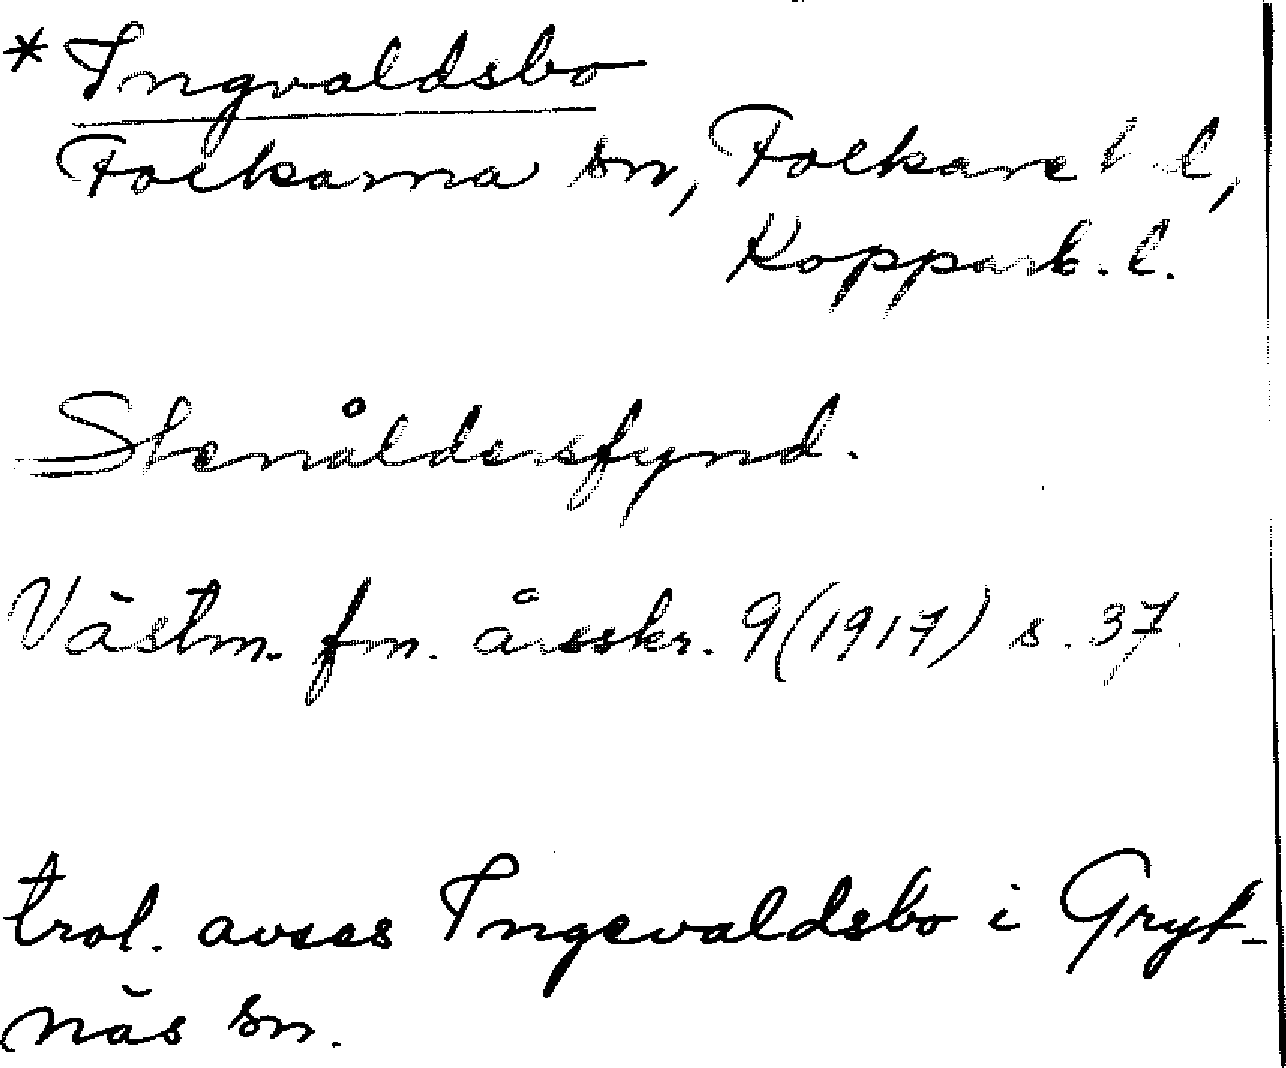 * Ingvaldsbo
Folkarna sn, Folkare t l,
Kopparb. l.
Stenåldersfynd.
Västm. fm. årsskr. 9 (1917) s. 37.
trol. avses Ingevaldsbo i Gryt-
näs sn.